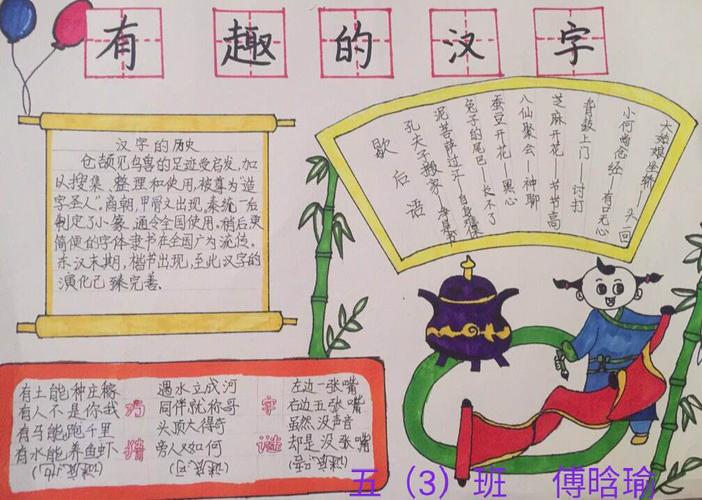 有趣的汉字
汉字的历史
仓颉见鸟兽的足迹受启发,加
以搜集、整理和使用,被尊为“造
字圣人”。商朝,甲骨文出现,秦统一后
制定了小篆,通令全国使用。稍后更
简便的字体隶书在全国广为流传。
东汉末期,楷书出现,至此汉字的
演化已臻完善。
歇后语
孔夫子搬家——净是书
泥菩萨过江——自身难保
兔子的尾巴——长不了
蚕豆开花——黑心
八仙聚会——神聊
芝麻开花——节节高
背鼓上门——讨打
小何尚念经——有口无心
大姑娘坐轿——头一回
巧猜字谜
有土能种庄稼
有人不是你我
有马能跑千里
有水能养鱼虾
遇水立成河
同伴就称哥
头顶大得奇
旁人又如何
左边一张嘴
右边五张嘴
虽然没声音
却是没张嘴
五(3)班 傅晗瑜